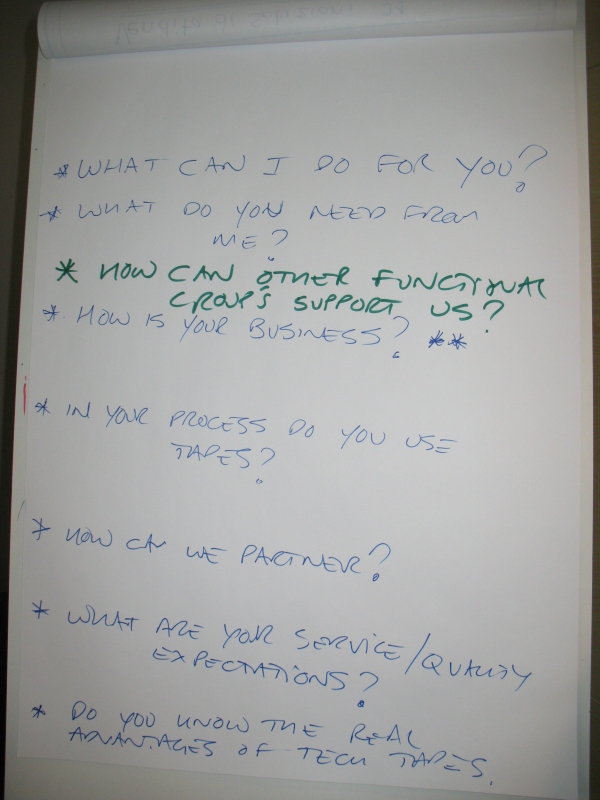 * WHAT CAN I DO FOR YOU?
* WHAT DO YOU NEED FROM
ME?
* HOW CAN OTHER FUNCTIONAL
GROUP'S SUPPORT US?
* HOW IS YOUR BUSINESS? **
* IN YOUR PROCESS DO YOU USE
TAPES?
* HOW CAN WE PARTNER?
* WHAT ARE YOUR SERVICE/QUALITY
EXPECTATIONS?
* DO YOU KNOW THE REAL
ADVANTAGES OF TECH TAPES.